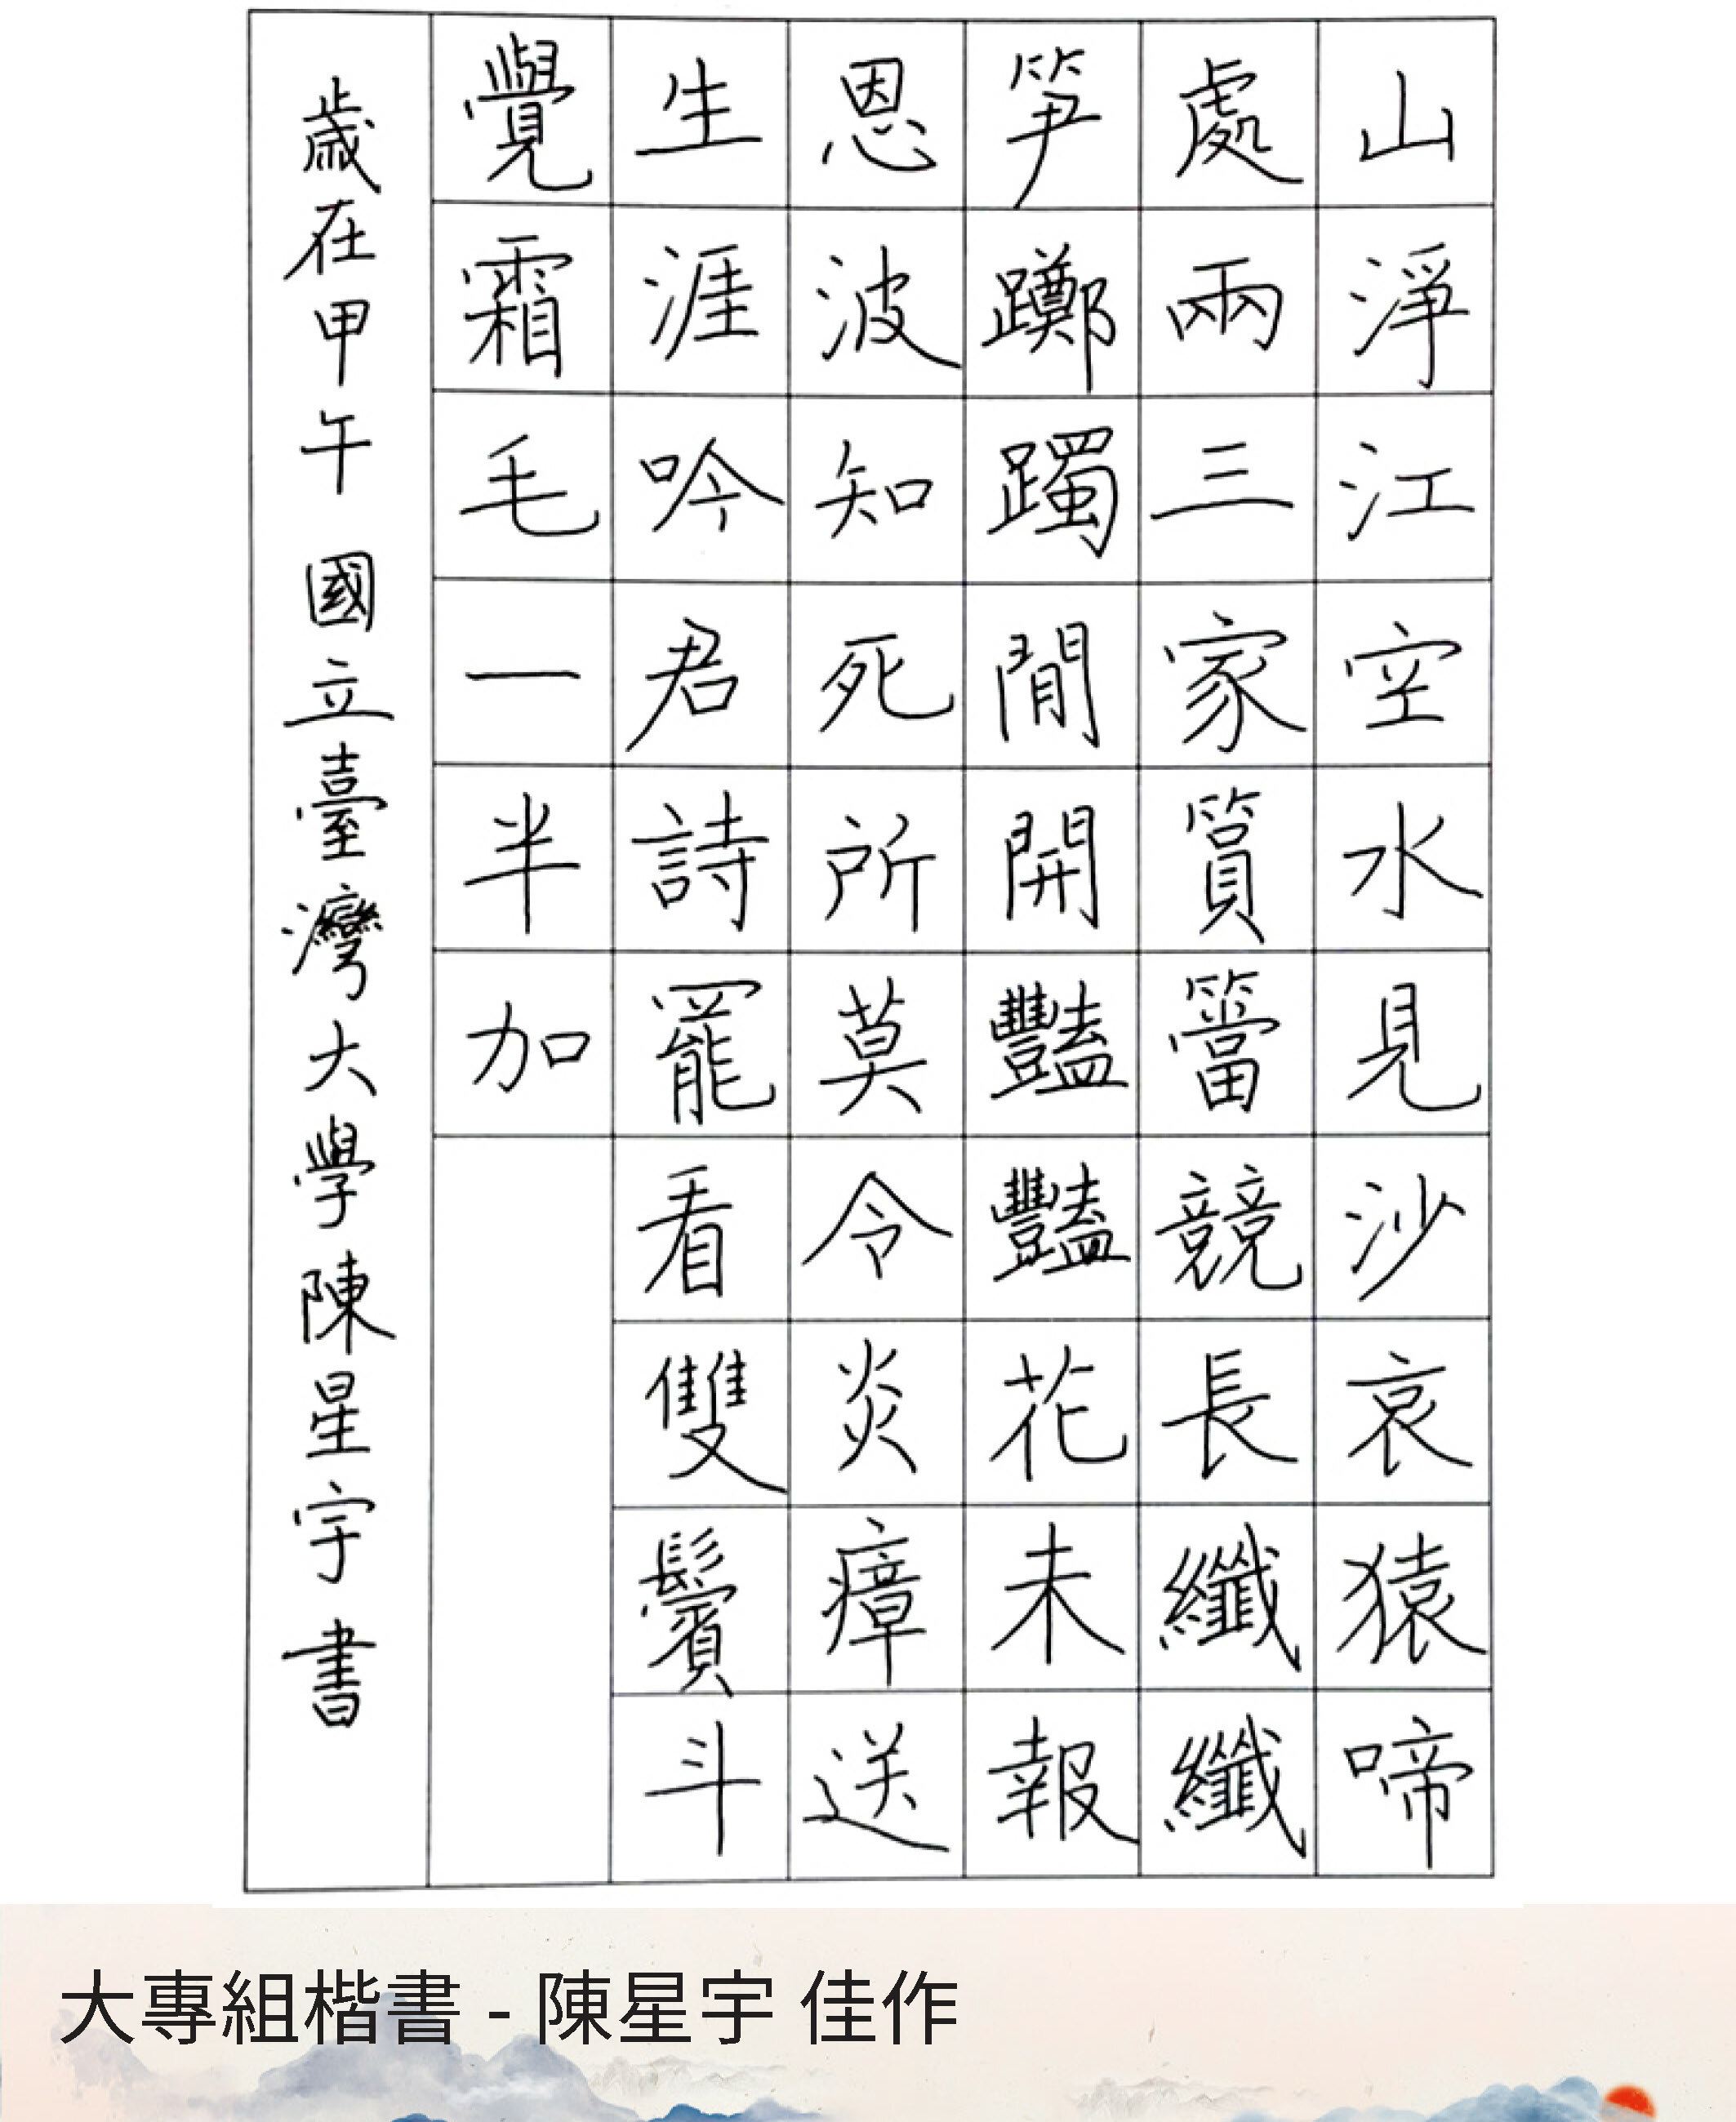 山淨江空水見沙哀猿啼
處兩三家篔簹競長纖纖
笋躑躅閒開豔豔花未報
恩波知死所莫令炎瘴送
生涯吟君詩罷看雙鬢斗
覺霜毛一半加
歲在甲午 國立臺灣大學陳星宇書
大專組楷書 - 陳星宇 佳作